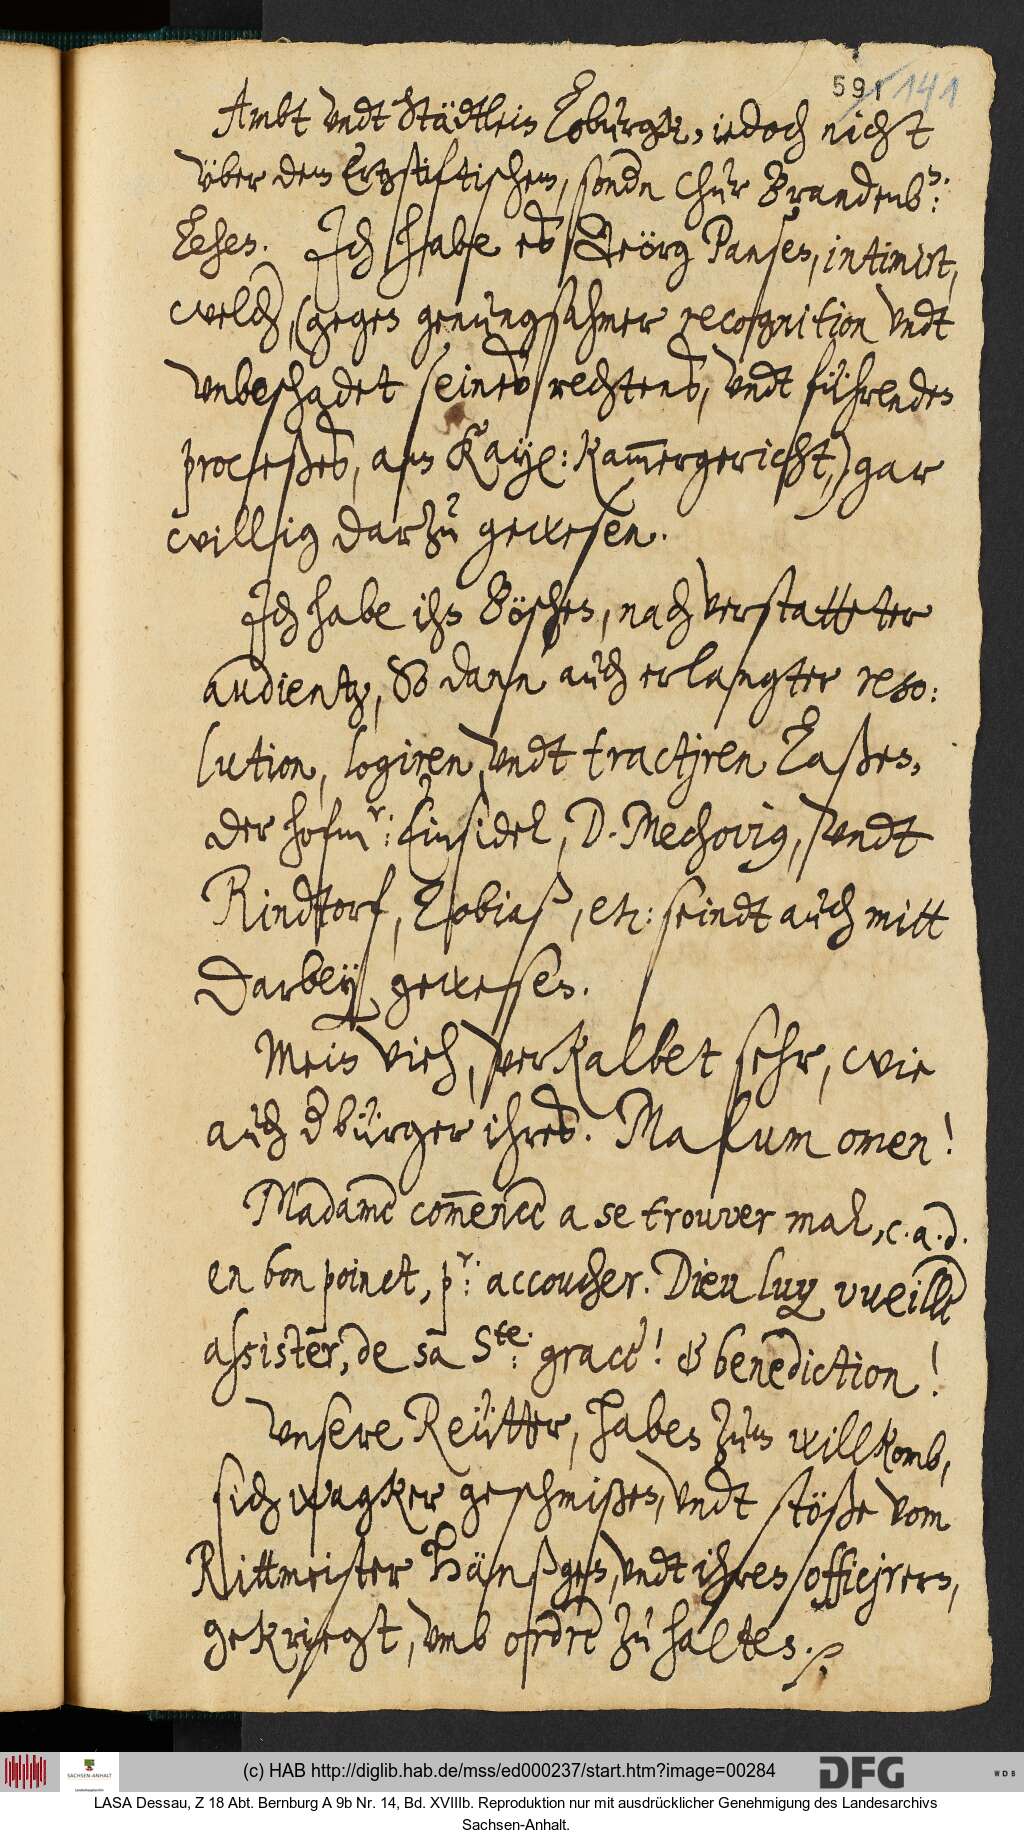 591 141
Ambt vndt Städtlein Loburgk, iedoch nicht
vber dem Ertzstiftischem, sondn Chur Brandenb.n:
Lehen. Ich habe es Geörg Pansen, intimirt,
welch, (gegen genungsahmer recognition vndt
vnbeschadet seines rechtens, vndt führendes
proceßes, am Kayl: Kam̅ergericht,) gar
willig darzu gewesen.
Ich habe ihn Böschen, nach verstatteter
audientz, So dann auch erlangter reso:
lution, logiren, vndt tractjren Laßen,
der hofmr: Einsidel, D. Mechovig, vndt
Rindtorf, Tobiaß, etc: seindt auch mitt
darbey gewesen.
Mein Vieh, verkalbet sehr, wie
auch d bürger ihres. Malum omen!
Madame com̅ence a se trouver mal, c.a.d.
en bon poinct, pr: accoucher. Dieu luy vueille
assister, de sa Ste: grace! & benediction!
Vnsere Reütter, haben zum willkomb,
sich wagker geschmißen, vndt stöße vom
Rittmeister Hänßgen, vndt ihren officjrern,
gekriegt, vmb ordre zu halten.
(c) HAB http://diglib.hab.de/mss/ed000237/start.htm?image=00284
SACHSEN-ANHALT
DFG
WDB
LASA Dessau, Z 18 Abt. Bernburg A 9b Nr. 14, Bd. XVIIIb. Reproduktion nur mit ausdrücklicher Genehmigung des Landesarchivs
Sachsen-Anhalt.